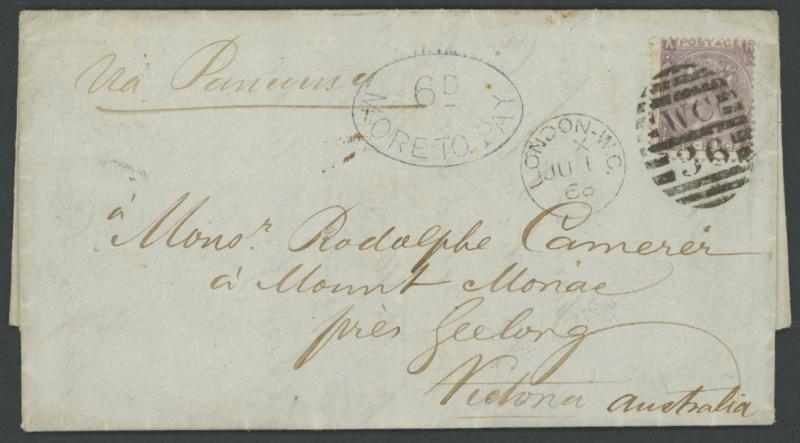 Via Panama
6D
MORE TO PAY
LONDON-W.C.
X
JU 1
68
A POSTAGE R
WC
36
à Monsr. Rodolphe Camerer
à Mount Moriac
près Geelong
Victoria Australia